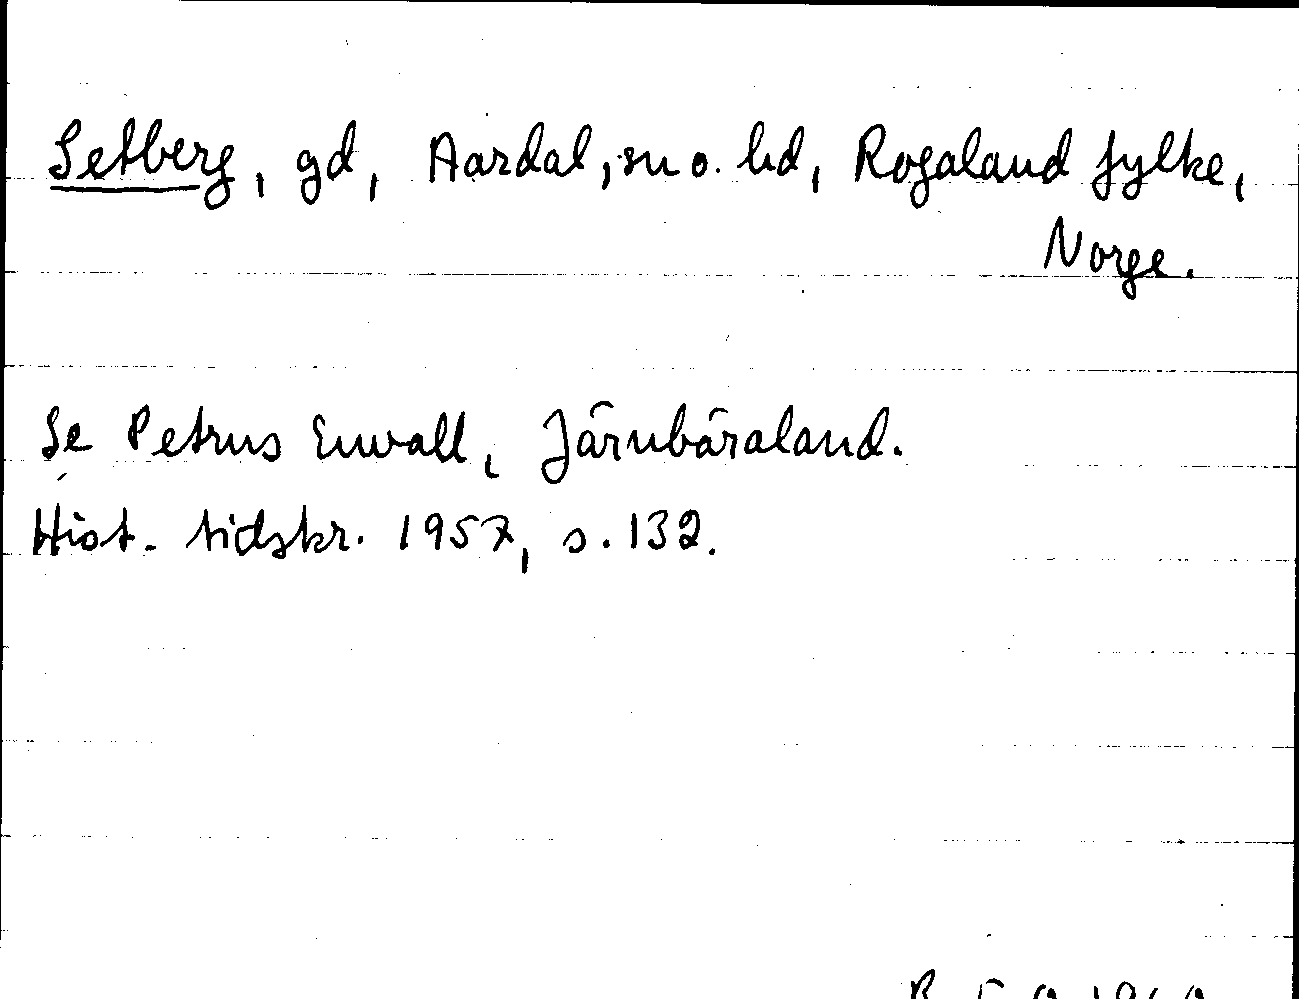 Setberg, gd, Aardal, sn o. hd, Rogaland fylke,
Norge.
Se Petrus Envall, Järnbäraland.
Hist. tidskr. 1957, s. 132.